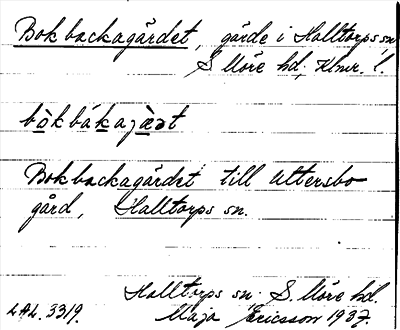 Bokbackagärdet, gärde i Halltorps sn
S. Möre hd, Klmr. l.
bòkbákaȷæ̀ət
Bokbackagärdet till Uttersbo
gård, Halltorps sn.
Halltorps sn. S. Möre hd.
LAL. 3319. Maja Ericsson 1937.